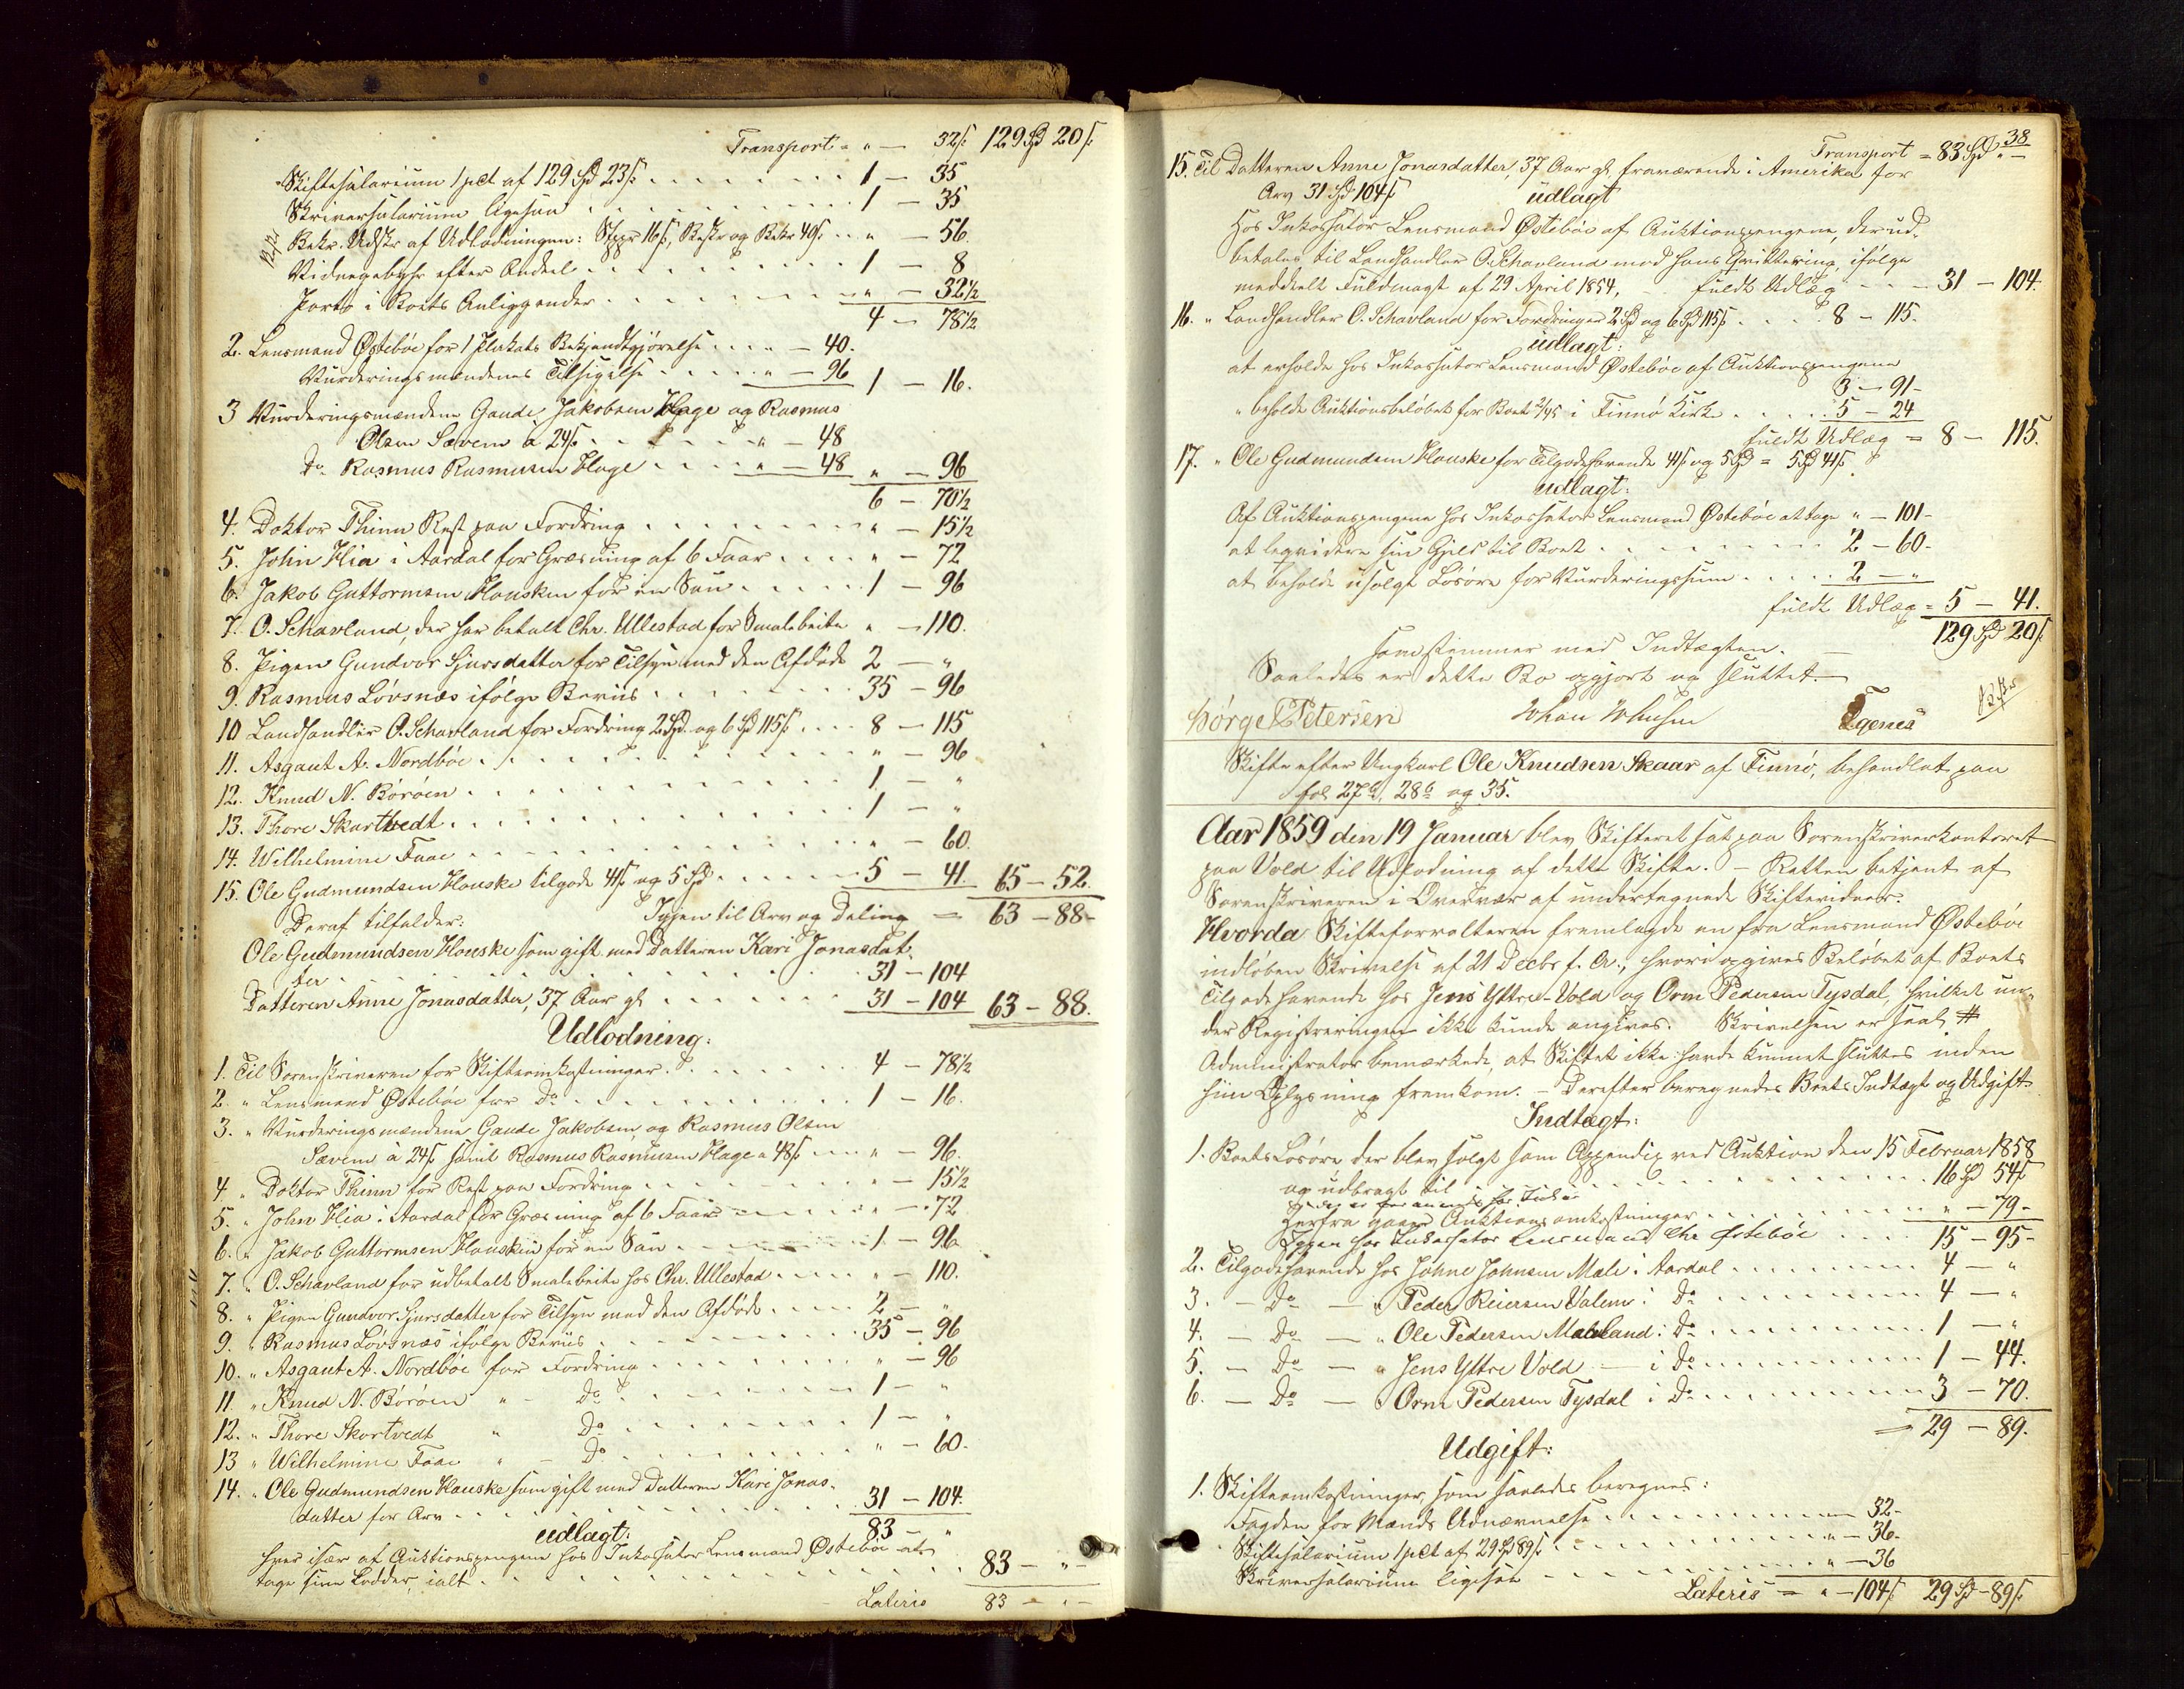 Transport = " — 32ß 129 Spd 20ß
Skiftesalarium 1 pCt af 129 Spd 23ß . . . . 1 — 35
Skriversalarium ligesaa . . . . 1 — 35
Bekr. Udskr af Udlodningen: Stppr 16ß, Beskr og Bekr 40ß . . " — 56.
Vidnegebyhr efter Andeel . . . . 1 — 8
Porto i Boets Anliggender . . . . " — 32½
4 — 78½
2. Lensmand Østebøe for 1 Plakats Bekjendtgjørelse . . . " — 40.
Vurderingsmændenes Tilsigelse . . . . " — 96 1 — 16.
3 Vurderingsmændene Gaude Jakobsen Hage og Rasmus
Olsen Sævem a 24ß . . . . " — 48
Do Rasmus Rasmussen Hage . . . . " — 48 " — 96
6 — 70½
4. Doktor Thinn Rest paa Fordring . . . . " — 15½
5. John Hia i Aardal for Græsning af 6 Faar . . . . " — 72
6. Jakob Guttormsen Hausken for en Sau . . . . 1 — 96
7. O. Schavland, der har betalt Chr. Ullestad for Smalebeite " — 110.
8. Pigen Gundvor Sjursdatter for Tilsyn med den Afdøde 2 — "
9. Rasmus Løvsnæs ifølge Beviis . . . . 35 — 96
10 Landhandler O. Schavland for Fordring 2 Spd. og 6 Spd 115ß . . . 8 — 115
11. Asgaut A. Nordbøe . . . . " — 96
12. Knud N. Børøen . . . . 1 — "
13. Thore Skartvedt . . . . 1 — "
14. Wilhelmine Faae . . . . " — 60.
15. Ole Gudmundsen Hauske tilgode 41ß og 5 Spd . . . . 5 — 41. 65 — 52.
Igjen til Arv og Deling = 63 — 88 —
Deraf tilfalder:
Ole Gudmundsen Hauske som gift med Datteren Kari Jonasdat-
ter . . . . 31 — 104
Datteren Anne Jonasdatter, 37 Aar gl . . . . 31 — 104 63 — 88.
Udlodning:
1. Til Sorenskriveren for Skifteomkostninger . . . . 4 — 78½
2. " Lensmand Østebøe for Do . . . . 1 — 16.
3. " Vurderingsmændene Gaude Jakobsen og Rasmus Olsen
Sævem à 24ß samt Rasmus Rasmussen Hage a 48ß . . . " — 96.
4. " Doktor Thinn for Rest paa Fordring . . . . " — 15½
5. " John Hia i Aardal for Græsning af 6 Faar . . . . " — 72
6. " Jakob Guttormsen Hausken for en Sau . . . . 1 — 96
7. " O. Schavland for udbetalt Smalebeite hos Chr. Ullestad . . . . " — 110.
8. " Pigen Gundvor Sjursdatter for Tilsyn med den Afdøde . . . . 2 — "
9. " Rasmus Løvsnæs ifølge Beviis . . . . 35 — 96
10. " Asgaut A. Nordbøe for Fordring . . . . " — 96
11. " Knud N. Børøen " - Do . . . . 1 — "
12. " Thore Skartvedt " Do . . . . 1 — "
13 " Wilhelmine Faae " - Do . . . . " — 60.
14. " Ole Gudmundsen Hauske som gift med Datteren Kari Jonas-
datter for Arv . . . . 31 — 104.
udlagt: 83 — "
hver især af Auktionspengene hos Inkassator Lensmand Østebøe at
tage sine Lodder, ialt . . . . 83 — " —
Lateris 83 — " —
38
Transport = 83 Spd " —
15. Til Datteren Anne Jonasdatter, 37 Aar gl, fraværende i Amerika, for
Arv 31 Spd 104ß
udlagt
Hos Inkassator Lensmand Østebøe af Auktionspengene, der ud-
betales til Landhandler O. Schavland mod hans Qvittering, ifølge
meddeelt Fuldmagt af 29 April 1854, fuldt Udlæg — — 31 — 104.
16. " Landhandler O. Schavland for Fordringer 2 Spd og 6 Spd 115ß . . . . 8 — 115.
udlagt:
at erholde hos Inkassator Lensmand Østebøe af Auktionspengene
3 — 91 —
" beholde Auktionsbeløbet for Boets 2/45 i Finnø Kirke . . . . 5 — 24
fuldt Udlæg = 8 — 115.
17. " Ole Gudmundsen Hauske for Tilgodehavende 41ß og 5 Spd = 5 Spd 41ß
udlagt:
Af Auktionspengene hos Inkassator Lensmand Østebøe at tage " — 101 —
at liqvidere sin Gjeld til Boet . . . . 2 — 60 —
at beholde usolgt Løsøre for Vurderingssum . . . . 2 — "
fuldt Udlæg = 5 — 41.
129 Spd 20ß
som stemmer med Indtægten. —
Saaledes er dette Bo opgjort og sluttet. —
Børge Petersen Johan Johnsen Egenes
Skifte efter Ungkarl Ole Knudsen Skaar af Finnø, behandlet paa
fol 27b, 28b og 35.
Aar 1859 den 19 Januar blev Skifteret sat paa Sorenskriverkontoret
paa Vold til Udlodning af dette Skifte. — Retten betjent af
Sorenskriveren i Overvær af undertegnede Skiftevidner.
Hvorda Skifteforvalteren fremlagde en fra Lensmand Østebøe
indløben Skrivelse af 21 Decbr f. A., hvori opgives Beløbet af Boets
Tilgodehavende hos Jens Yttre-Vold og Orm Pedersen Tysdal, hvilket un-
der Registreringen ikke kunde angives. Skrivelsen er saal #
Administrator bemærkede, at Skiftet ikke havde kunnet sluttes inden
hiin Oplysning fremkom. — Derefter beregnedes Boets Indtægt og Udgift
Indtægt:
1. Boets Løsøre der blev solgt som Appendix ved Auktion den 15 Februar 1858
og udbragt til . . . . 16 Spd 54ß
herfra gaaer Auktionsomkostninger . . . . " — 79 —
Igjen hos Inkassator Lensmand Chr Østebøe . . . . 15 — 95 —
2. Tilgodehavende hos Johne Johnsen Mæle i Aardal . . . . 4 — "
3. — Do — " Peder Reiersen Valem i Do . . . . 4 — "
4. — Do — " Ole Pedersen Maleland i Do . . . . 1 — "
5. — Do — " Jens Yttre Vold — i Do . . . . 1 — 44.
6. — Do — " Orm Pedersen Tysdal i Do . . . . 3 — 70.
= 29 — 89.
Udgift:
1. Skifteomkostninger, som saaledes beregnes:
Fogden for Mænds Udnævnelse . . . . — 32 —
Skiftesalarium 1 pCt af 29 Spd 89ß . . . . " — 36 —
Skriversalarium ligesaa . . . . " — 36
Lateris = " — 104ß 29 Spd — 89ß